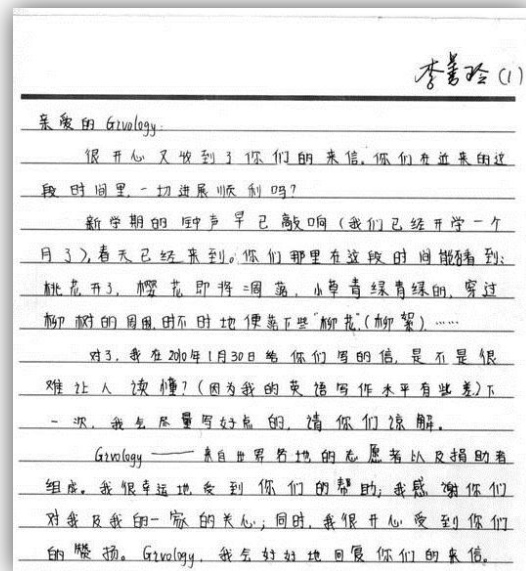 李善玲(1)
亲爱的 Givology:
很开心又收到了你们的来信,你们在近来的这
段时间里,一切进展顺利吗?
新学期的钟声早已敲响(我们已经开学一个
月了),春天已经来到。你们那里在这段时间能看到:
桃花开了,樱花即将凋落,小草青绿青绿的,穿过
柳树的周围,时不时地便落下些“柳花”(柳絮)……
对了,我在2010年1月30日给你们写的信,是不是很
难让人读懂?(因为我的英语写作水平有些差)下
一次,我会尽量写好点的,请你们谅解。
Givology —— 来自世界各地的志愿者以及捐助者
组成。我很幸运地受到你们的帮助;我感谢你们
对我及我的一家的关心;同时,我很开心受到你们
的赞扬。Givology,我会好好地回复你们的来信。